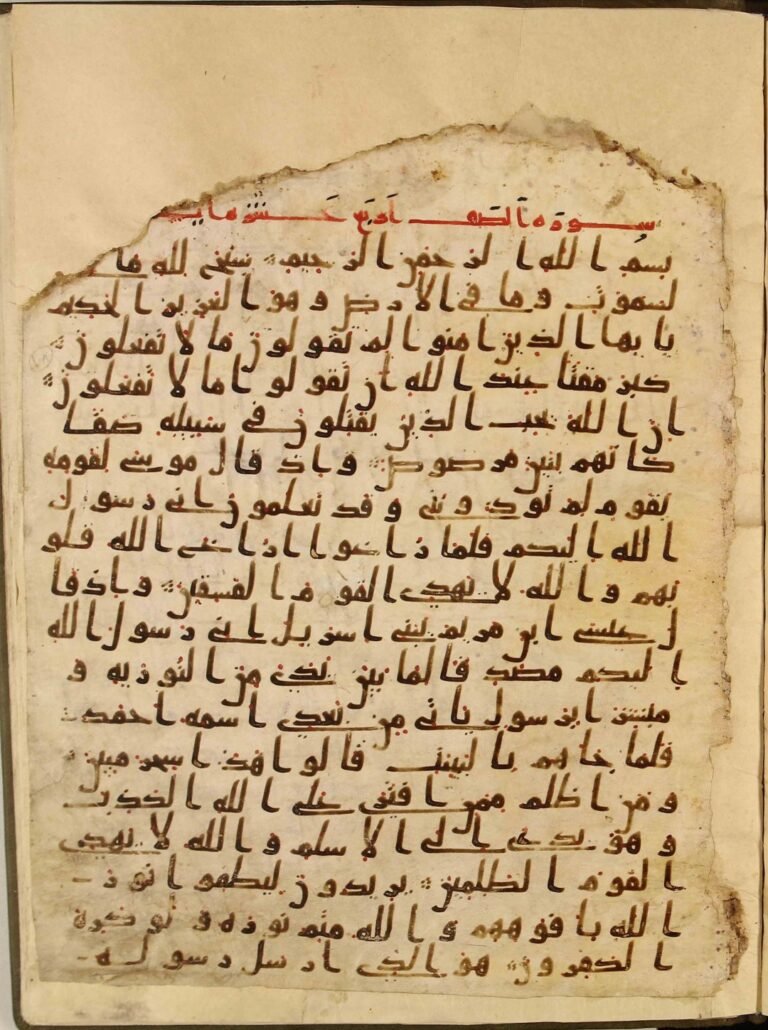 سورة الصف اربع عشر ايه
بسم الله الرحمن الرحيم سبح لله ما
لسموت وما في الارض وهو العزيز الحكيم
يايها الذين امنوا لم تقولون ما لا تفعلون
كبر مقتا عند الله ان تقولوا ما لا تفعلون
ان الله يحب الذين يقتلون في سبيله صفا
كانهم بنين مرصوص واذ قال موسى لقومه
يقوم لم توذونني وقد تعلمون اني رسول
الله اليكم فلما زاغوا ازاغ الله قلو
بهم والله لا يهدي القوم الفسقين واذ قا
ل عيسى ابن مريم يبني اسريل اني رسول الله
اليكم مصدقا لما بين يدي من التوريه و
مبشرا برسول ياتي من بعدي اسمه احمد
فلما جاهم بالبينت قالوا هذا سحر مبين
ومن اظلم ممن افترى على الله الكذب
وهو يدعى الى الاسلم والله لا يهدي
القوم الظلمين يريدون ليطفوا نور
الله بافوههم والله متم نوره ولو كره
الكفرون هو الذي ارسل رسوله